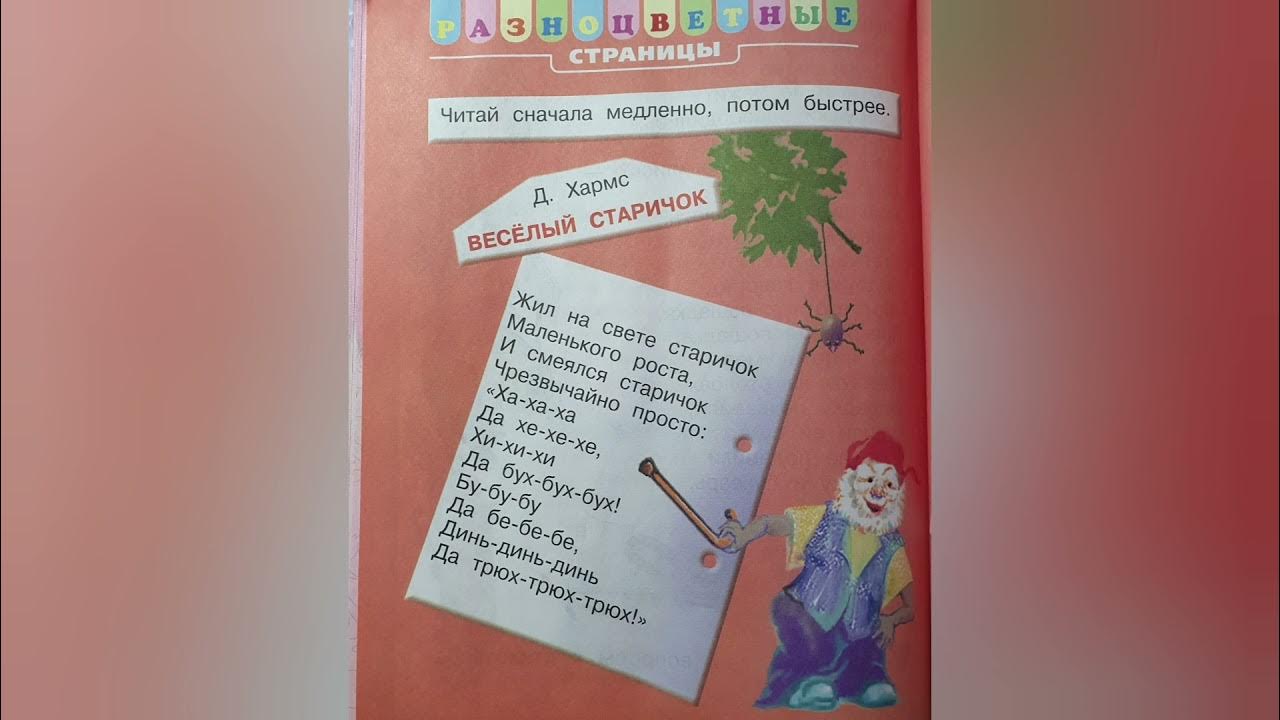 РАЗНОЦВЕТНЫЕ
СТРАНИЦЫ
Читай сначала медленно, потом быстрее.
Д. Хармс
ВЕСЁЛЫЙ СТАРИЧОК
Жил на свете старичок
Маленького роста,
И смеялся старичок
Чрезвычайно просто:
«Ха-ха-ха
Да хе-хе-хе,
Хи-хи-хи
Да бух-бух-бух!
Бу-бу-бу
Да бе-бе-бе,
Динь-динь-динь
Да трюх-трюх-трюх!»